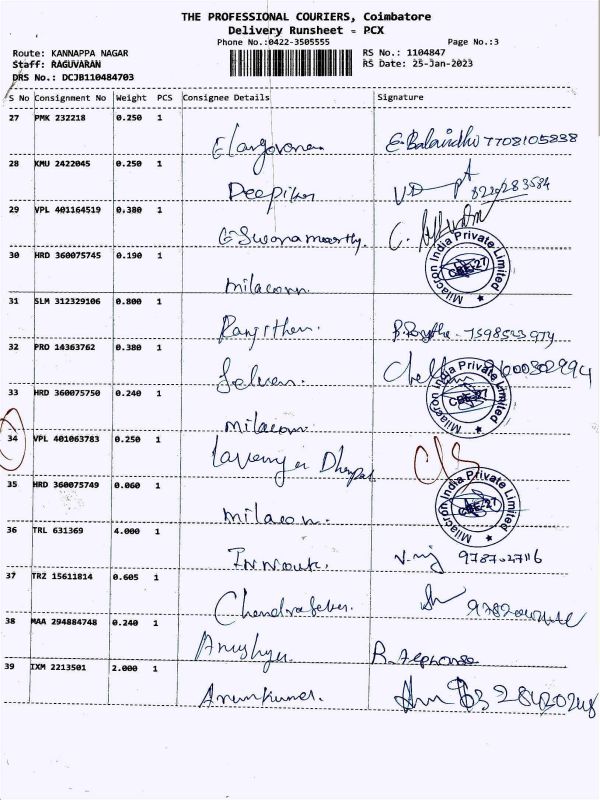 THE PROFESSIONAL COURIERS, Coimbatore
Delivery Runsheet - PCX
Phone No.:0422-3505555 Page No.:3
Route: KANNAPPA NAGAR RS No.: 1104847
Staff: RAGUVARAN RS Date: 25-Jan-2023
DRS No.: DCJB110484703
S No Consignment No Weight PCS Consignee Details Signature
27 PMK 232218 0.250 1
Elangovanan E. Balaindhu 7708105838
28 KMU 2422045 0.250 1
Deepika 8220283584
29 VPL 401164519 0.380 1
G Swaramoorthy.
30 HRD 360075745 0.190 1
milacorn. Milacron India Private Limited CBE-27
31 SLM 312329106 0.800 1
Ranjithem. 7598523974
32 PRO 14363762 0.380 1
Selven.
33 HRD 360075750 0.240 1
milacorn. Milacron India Private Limited CBE-27
34 VPL 401063783 0.250 1
35 HRD 360075749 0.060 1
milacorn. Milacron India Private Limited CBE-27
36 TRL 631369 4.000 1
37 TRZ 15611814 0.605 1
Chandrasekar.
38 MAA 294884748 0.240 1
R. Alphonse
39 IXM 2213501 2.000 1
Arunkumar.